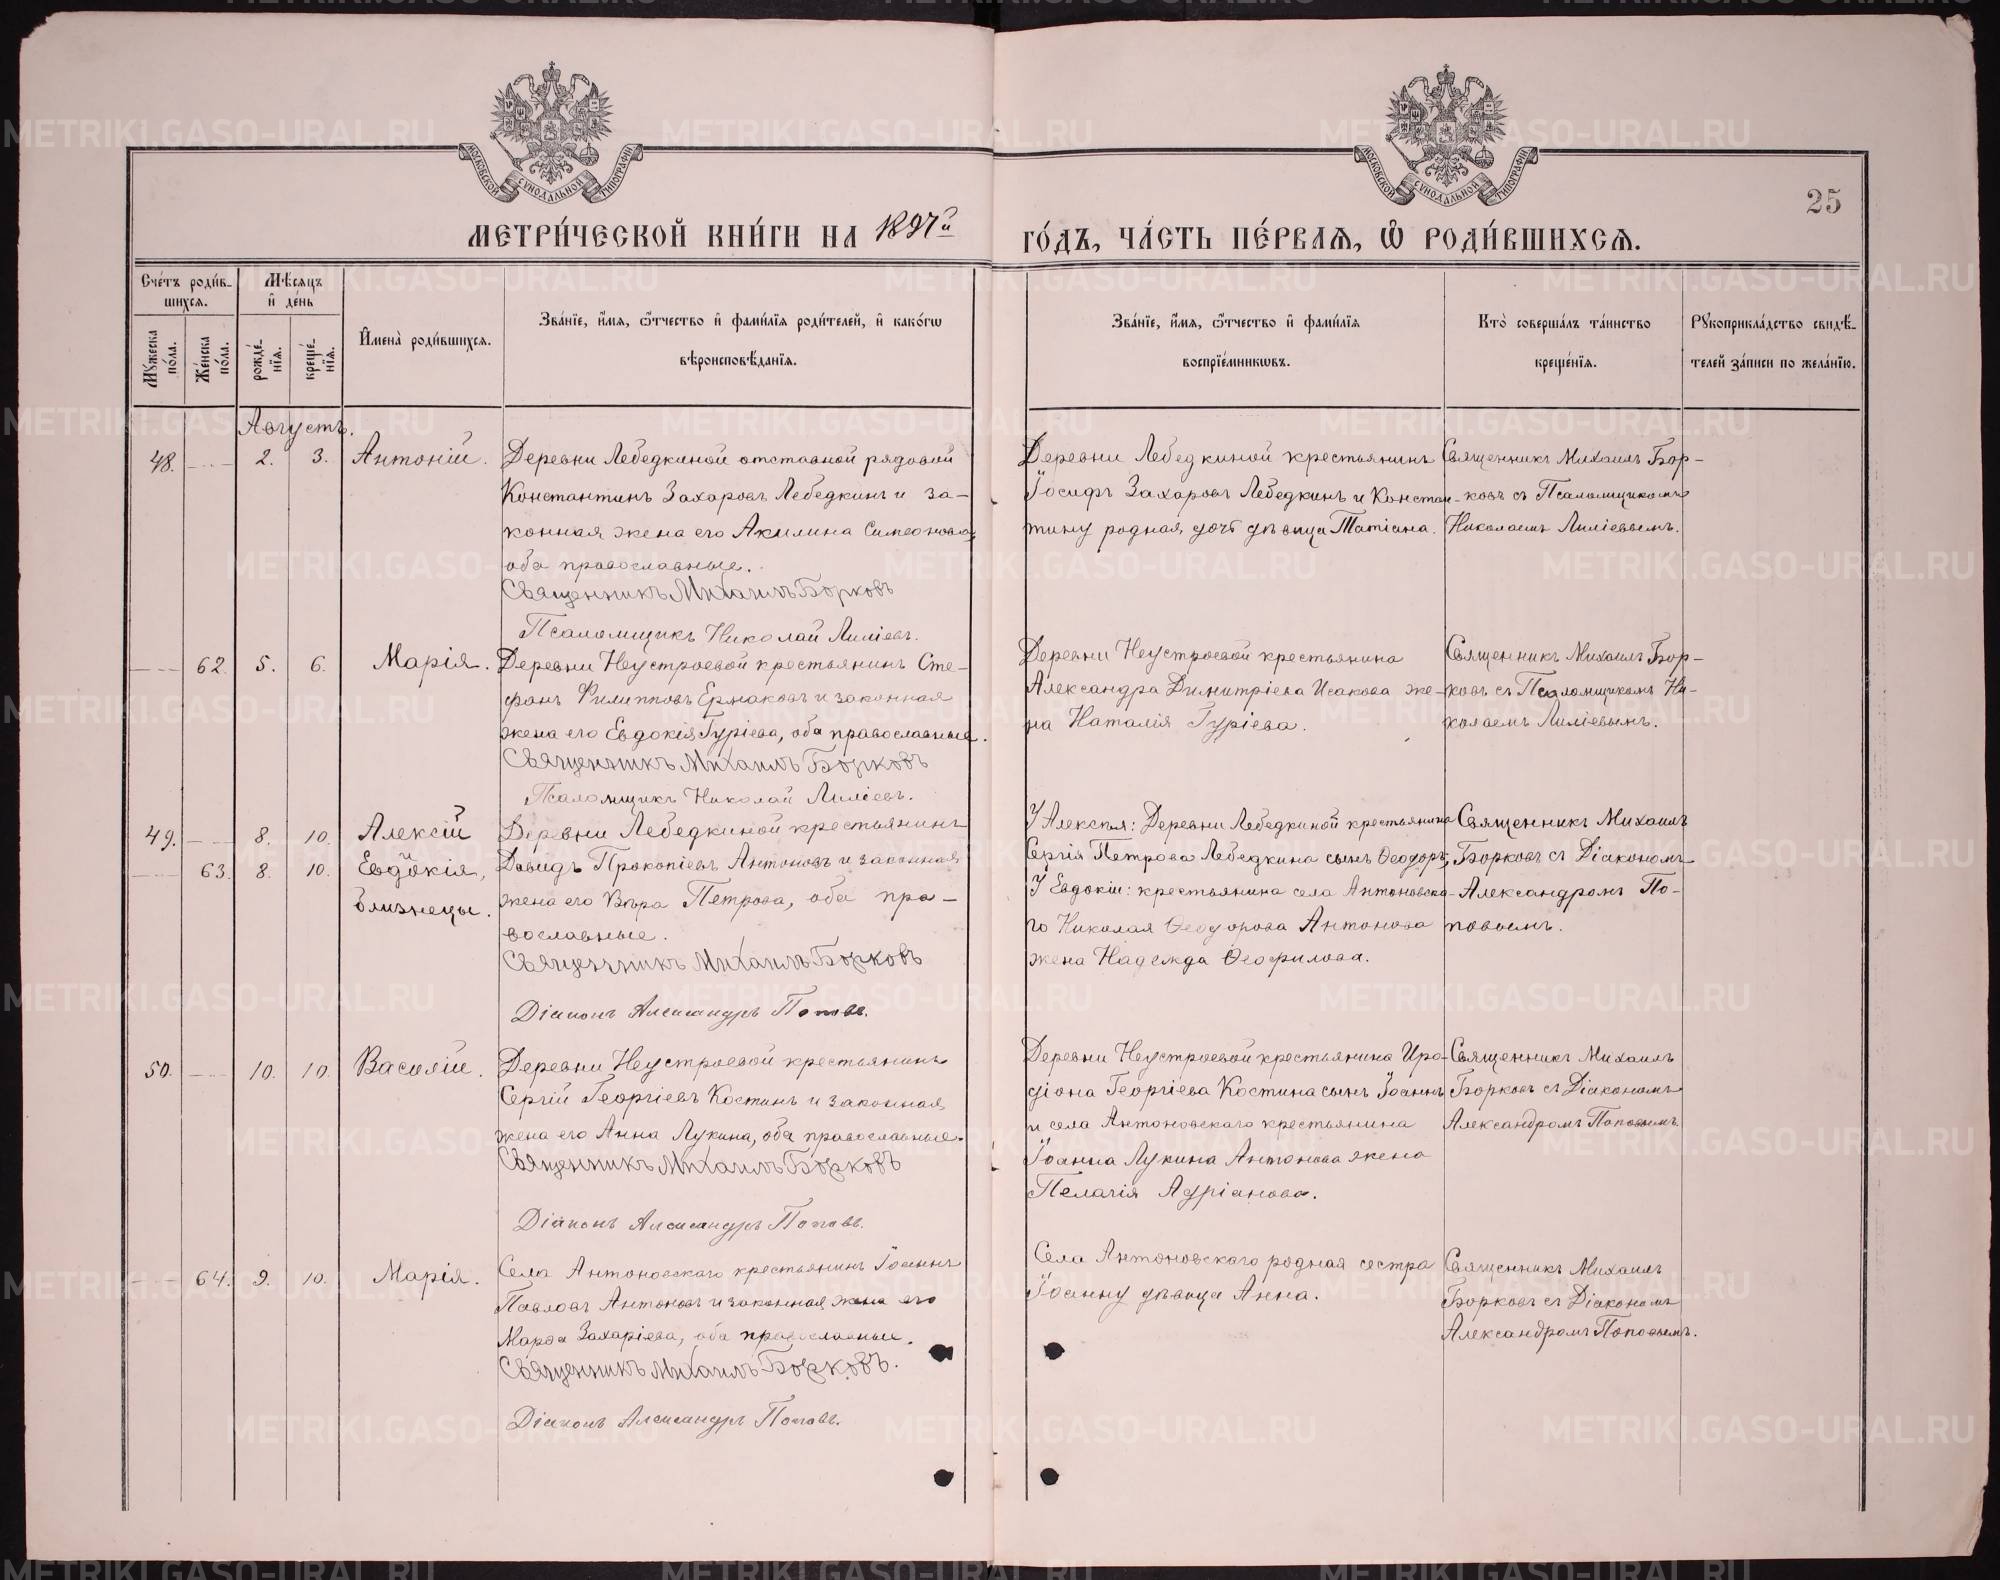 МОСКОВСКОЙ СѴНОДАЛЬНОЙ ТИПОГРАФІИ
МОСКОВСКОЙ СѴНОДАЛЬНОЙ ТИПОГРАФІИ
25
МЕТРИ́ЧЕСКОЙ КНИ́ГИ НА 1897й
ГО́ДЪ, ЧА́СТЬ ПЕ́РВАЯ, Ѡ РОДИ́ВШИХСЯ.
Сче́тъ роди́в-
шихся.
Мѣ́сяцъ
и де́нь
Му́жеска по́ла.
Же́нска по́ла.
рожде́-нїя.
креще́-нїя.
Имена̀ роди́вшихся.
Зва́нїе, и́мя, ѻ́тчество и фами́лїя роди́телей, и како́гѡ
вѣроисповѣ́данїя.
Зва́нїе, и́мя, ѻ́тчество и фами́лїя
воспрїе́мникѡвъ.
Кто̀ соверша́лъ та́инство
креще́нїя.
Рꙋкоприкла́дство свидѣ́-
телей за́писи по жела́нїю.
Августъ.
48. 2. 3. Антоній.
Деревни Лебедкиной отставной рядовой
Константинъ Захаровъ Лебедкинъ и за-
конная жена его Акилина Симеонова,
оба православные.
Священникъ Михаилъ Борковъ
Псаломщикъ Николай Лиліевъ.
Деревни Лебедкиной крестьянинъ
Іосифъ Захаровъ Лебедкинъ и Констан-
тину родная дочь дѣвица Татіана.
Священникъ Михаилъ Бор-
ковъ съ Псаломщикомъ
Николаемъ Лиліевымъ.
62. 5. 6. Марія.
Деревни Неустроевой крестьянинъ Сте-
фанъ Филипповъ Ермаковъ и законная
жена его Евдокія Гуріева, оба православные.
Священникъ Михаилъ Борковъ
Псаломщикъ Николай Лиліевъ.
Деревни Неустроевой крестьянина
Александра Димитріева Исакова же-
на Наталія Гуріева.
Священникъ Михаилъ Бор-
ковъ съ Псаломщикомъ Ни-
колаемъ Лиліевымъ.
49. 8. 10. Алексій
63. 8. 10. Евдокія,
близнецы.
Деревни Лебедкиной крестьянинъ
Давидъ Прокопіевъ Антоновъ и законная
жена его Вѣра Петрова, оба пра-
вославные.
Священникъ Михаилъ Борковъ
Діаконъ Александръ Поповъ.
У Алексѣя: Деревни Лебедкиной крестьянина
Сергія Петрова Лебедкина сынъ Ѳеодоръ;
У Евдокіи: крестьянина села Антоновска-
го Николая Ѳеодорова Антонова
жена Надежда Ѳеофилова.
Священникъ Михаилъ
Борковъ съ Діакономъ
Александромъ По-
повымъ.
50. 10. 10. Василій.
Деревни Неустроевой крестьянинъ
Сергій Георгіевъ Костинъ и законная
жена его Анна Лукина, оба православные.
Священникъ Михаилъ Борковъ
Діаконъ Александръ Поповъ.
Деревни Неустроевой крестьянина Иро-
діона Георгіева Костина сынъ Іоаннъ
и села Антоновскаго крестьянина
Іоанна Лукина Антонова жена
Пелагія Адріанова.
Священникъ Михаилъ
Борковъ съ Діакономъ
Александромъ Поповымъ.
64. 9. 10. Марія.
Села Антоновскаго крестьянинъ Іоаннъ
Павловъ Антоновъ и законная жена его
Марѳа Захаріева, оба православные.
Священникъ Михаилъ Борковъ.
Діаконъ Александръ Поповъ.
Села Антоновскаго родная сестра
Іоанну дѣвица Анна.
Священникъ Михаилъ
Борковъ съ Діакономъ
Александромъ Поповымъ.
METRIKI.GASO-URAL.RU